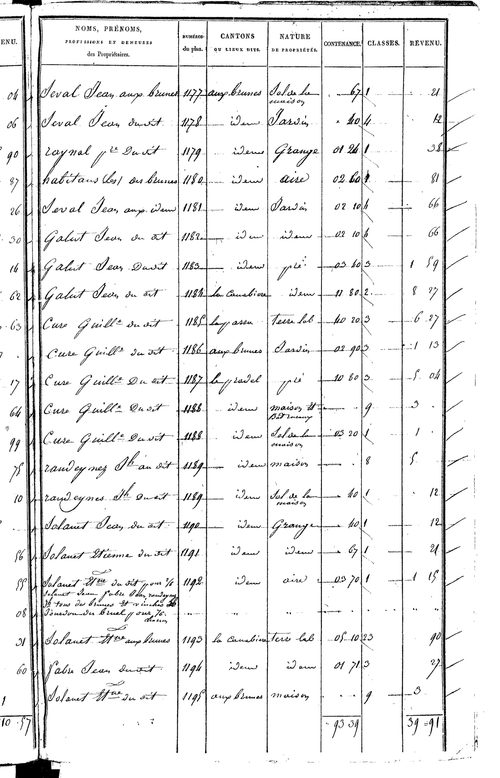 ENU.
NOMS, PRÉNOMS, PROFESSIONS ET DEMEURES des Propriétaires. | NUMÉROS du plan. | CANTONS OU LIEUX DITS. | NATURE DE PROPRIÉTÉS. | CONTENANCE. | CLASSES. | REVENU.
04 Seval Jean aux brunes 1177 aux brunes Sol de la maison 67 1 21
06 Seval Jean du dit 1178 idem Jardin 40 4 12
90 raynal du dit 1179 idem Grange 01 26 1 38
87 habitans (les) des brunes 1180 idem aire 02 60 1 81
26 Seval Jean aux idem 1181 idem Jardin 02 10 4 66
30 Galut Jean du dit 1182 idem idem 02 10 4 66
16 Galut Jean du dit 1183 idem pré 03 60 3 1 59
62 Galut Jean du dit 1184 la Canabière idem 11 80 2 8 27
63 Cure Guill.e du dit 1185 terre lab 40 20 3 6 27
Cure Guill.e du dit 1186 aux brunes Jardin 02 90 3 1 13
17 Cure Guill.e du dit 1187 le pradel pré 10 80 3 5 04
64 Cure Guill.e du dit 1188 idem maison et 9 3
99 Cure Guill.e du dit 1188 idem Sol de la maison 03 20 1 1
75 au dit 1189 idem maison 8 5
10 du dit 1189 idem Sol de la maison 40 1 12
Solanet Jean du dit 1190 idem Grange 40 1 12
56 Solanet Etienne du dit 1191 idem idem 67 1 21
55 Solanet Et.ne du dit pour 1192 idem aire 03 70 1 1 15
Solanet Jean fabre Jean
des brunes et
08 pour
31 Solanet Et.ne aux brunes 1193 la Canabière terre lab 05 10 23 90
60 fabre Jean du dit 1194 idem idem 01 71 3 27
Solanet Et.ne du dit 1195 aux brunes maison 9 3
10 57 93 39 39 91